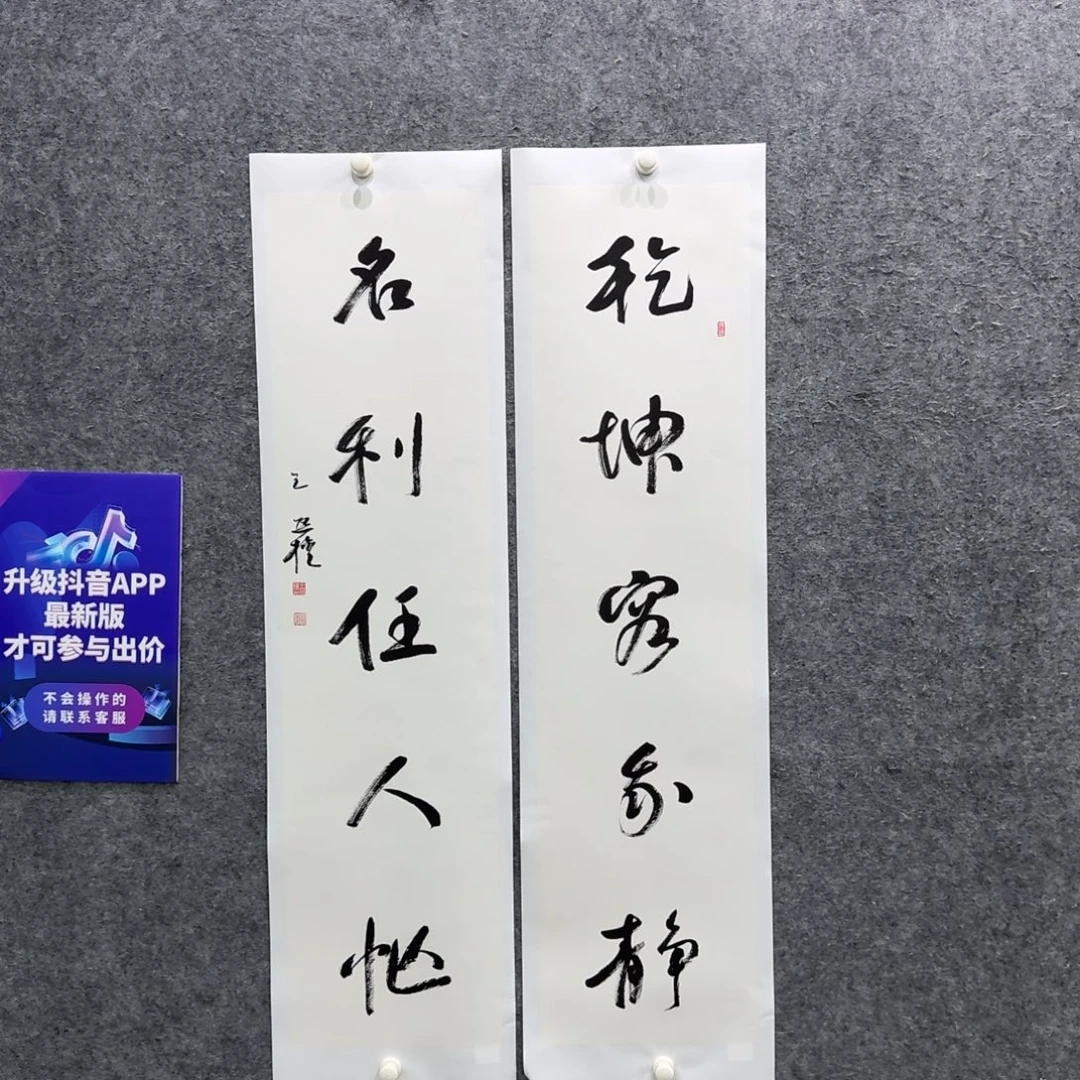 乾坤容我静
名利任人忙
升级抖音APP
最新版
才可参与出价
不会操作的
请联系客服